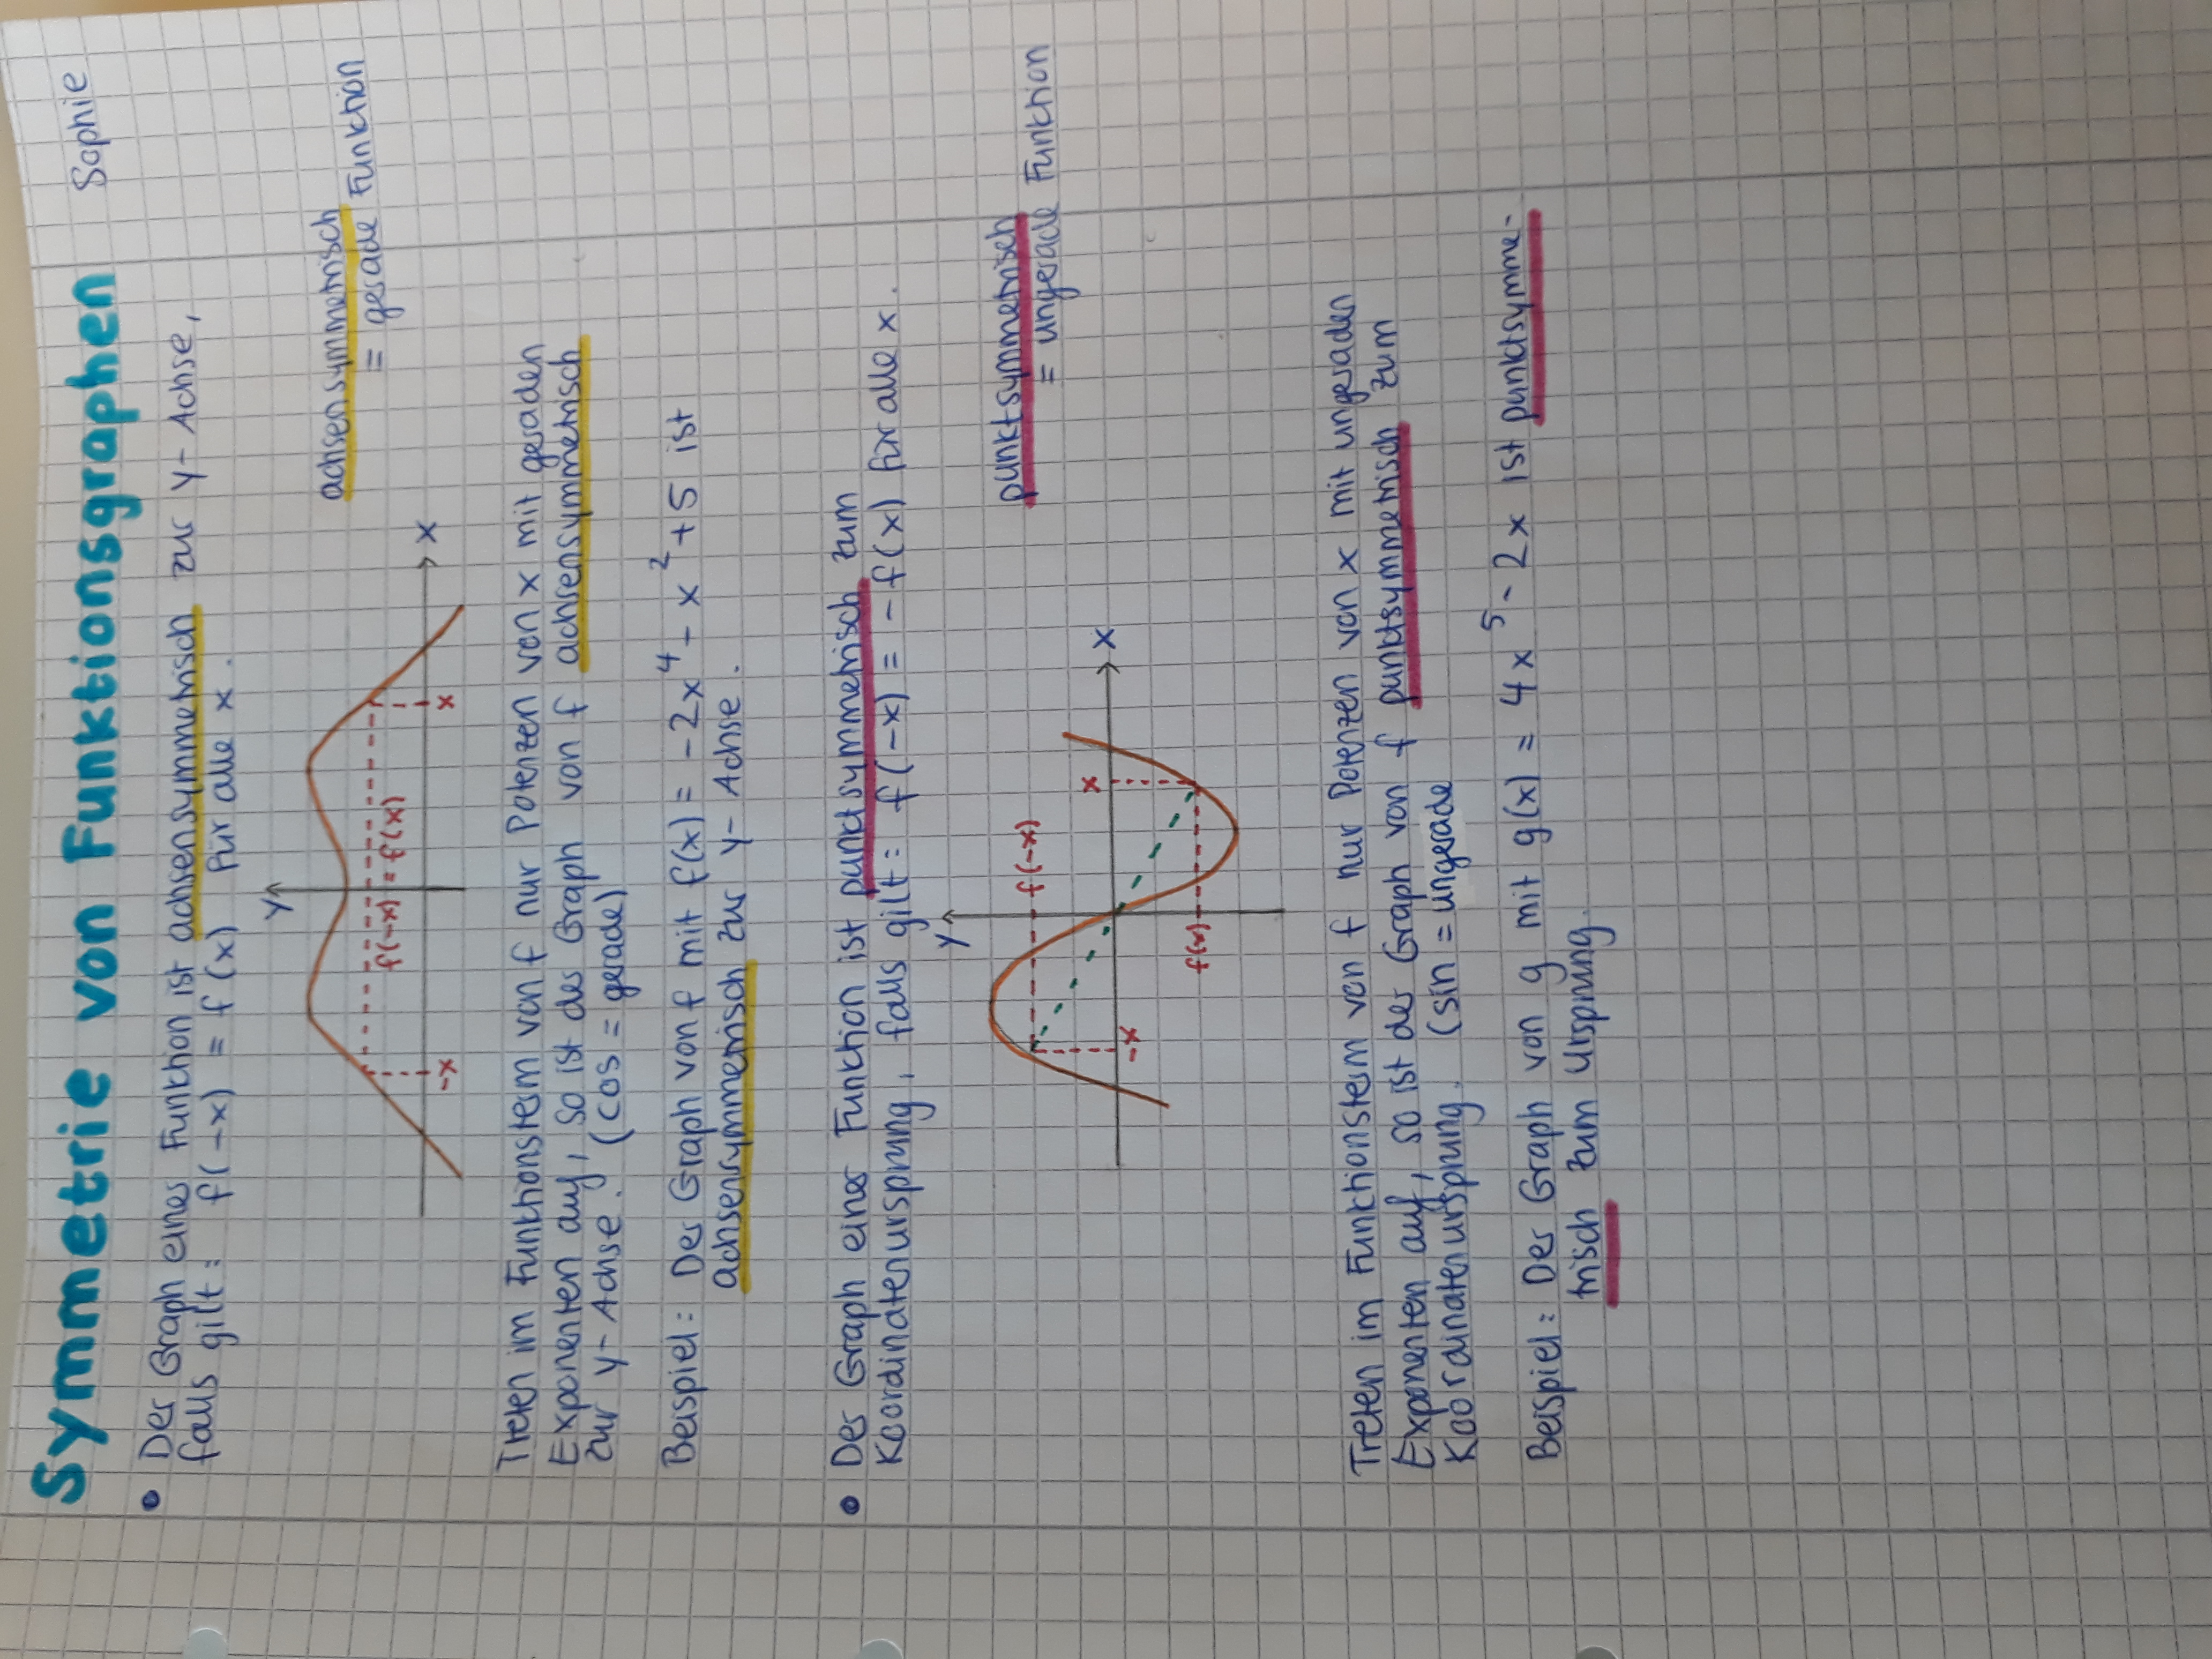 Symmetrie von Funktionsgraphen Sophie
• Der Graph einer Funktion ist achsensymmetrisch zur y-Achse,
falls gilt: f(-x) = f(x) für alle x.
y
x
-x
x
f(-x) = f(x)
achsensymmetrisch
= gerade Funktion
Treten im Funktionsterm von f nur Potenzen von x mit geraden
Exponenten auf, so ist des Graph von f achsensymmetrisch
zur y-Achse. (cos = gerade)
Beispiel: Der Graph von f mit f(x) = -2x⁴ - x² + 5 ist
achsensymmetrisch zur y-Achse.
• Der Graph einer Funktion ist punktsymmetrisch zum
Koordinatenursprung, falls gilt: f(-x) = -f(x) für alle x.
y
x
f(-x)
x
-x
f(x)
punktsymmetrisch
= ungerade Funktion
Treten im Funktionsterm von f nur Potenzen von x mit ungeraden
Exponenten auf, so ist der Graph von f punktsymmetrisch zum
Koordinatenursprung. (sin = ungerade
Beispiel: Der Graph von g mit g(x) = 4x⁵ - 2x ist punktsymme-
trisch zum Ursprung.